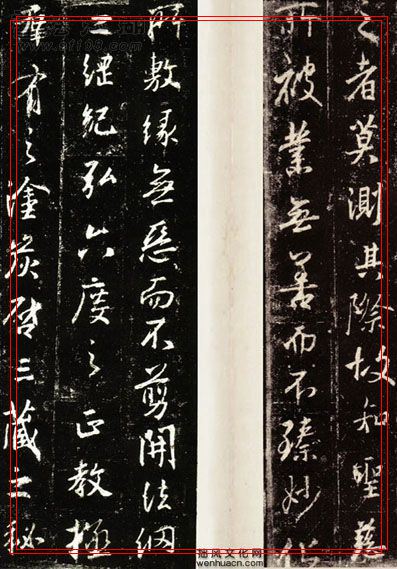 之者莫測其際故知聖慈
所被業無善而不臻妙化
所敷緣無惡而不剪開法網
之綱紀弘六度之正教拯
羣有之塗炭啓三藏之秘
风文化网
wenhuacn.com